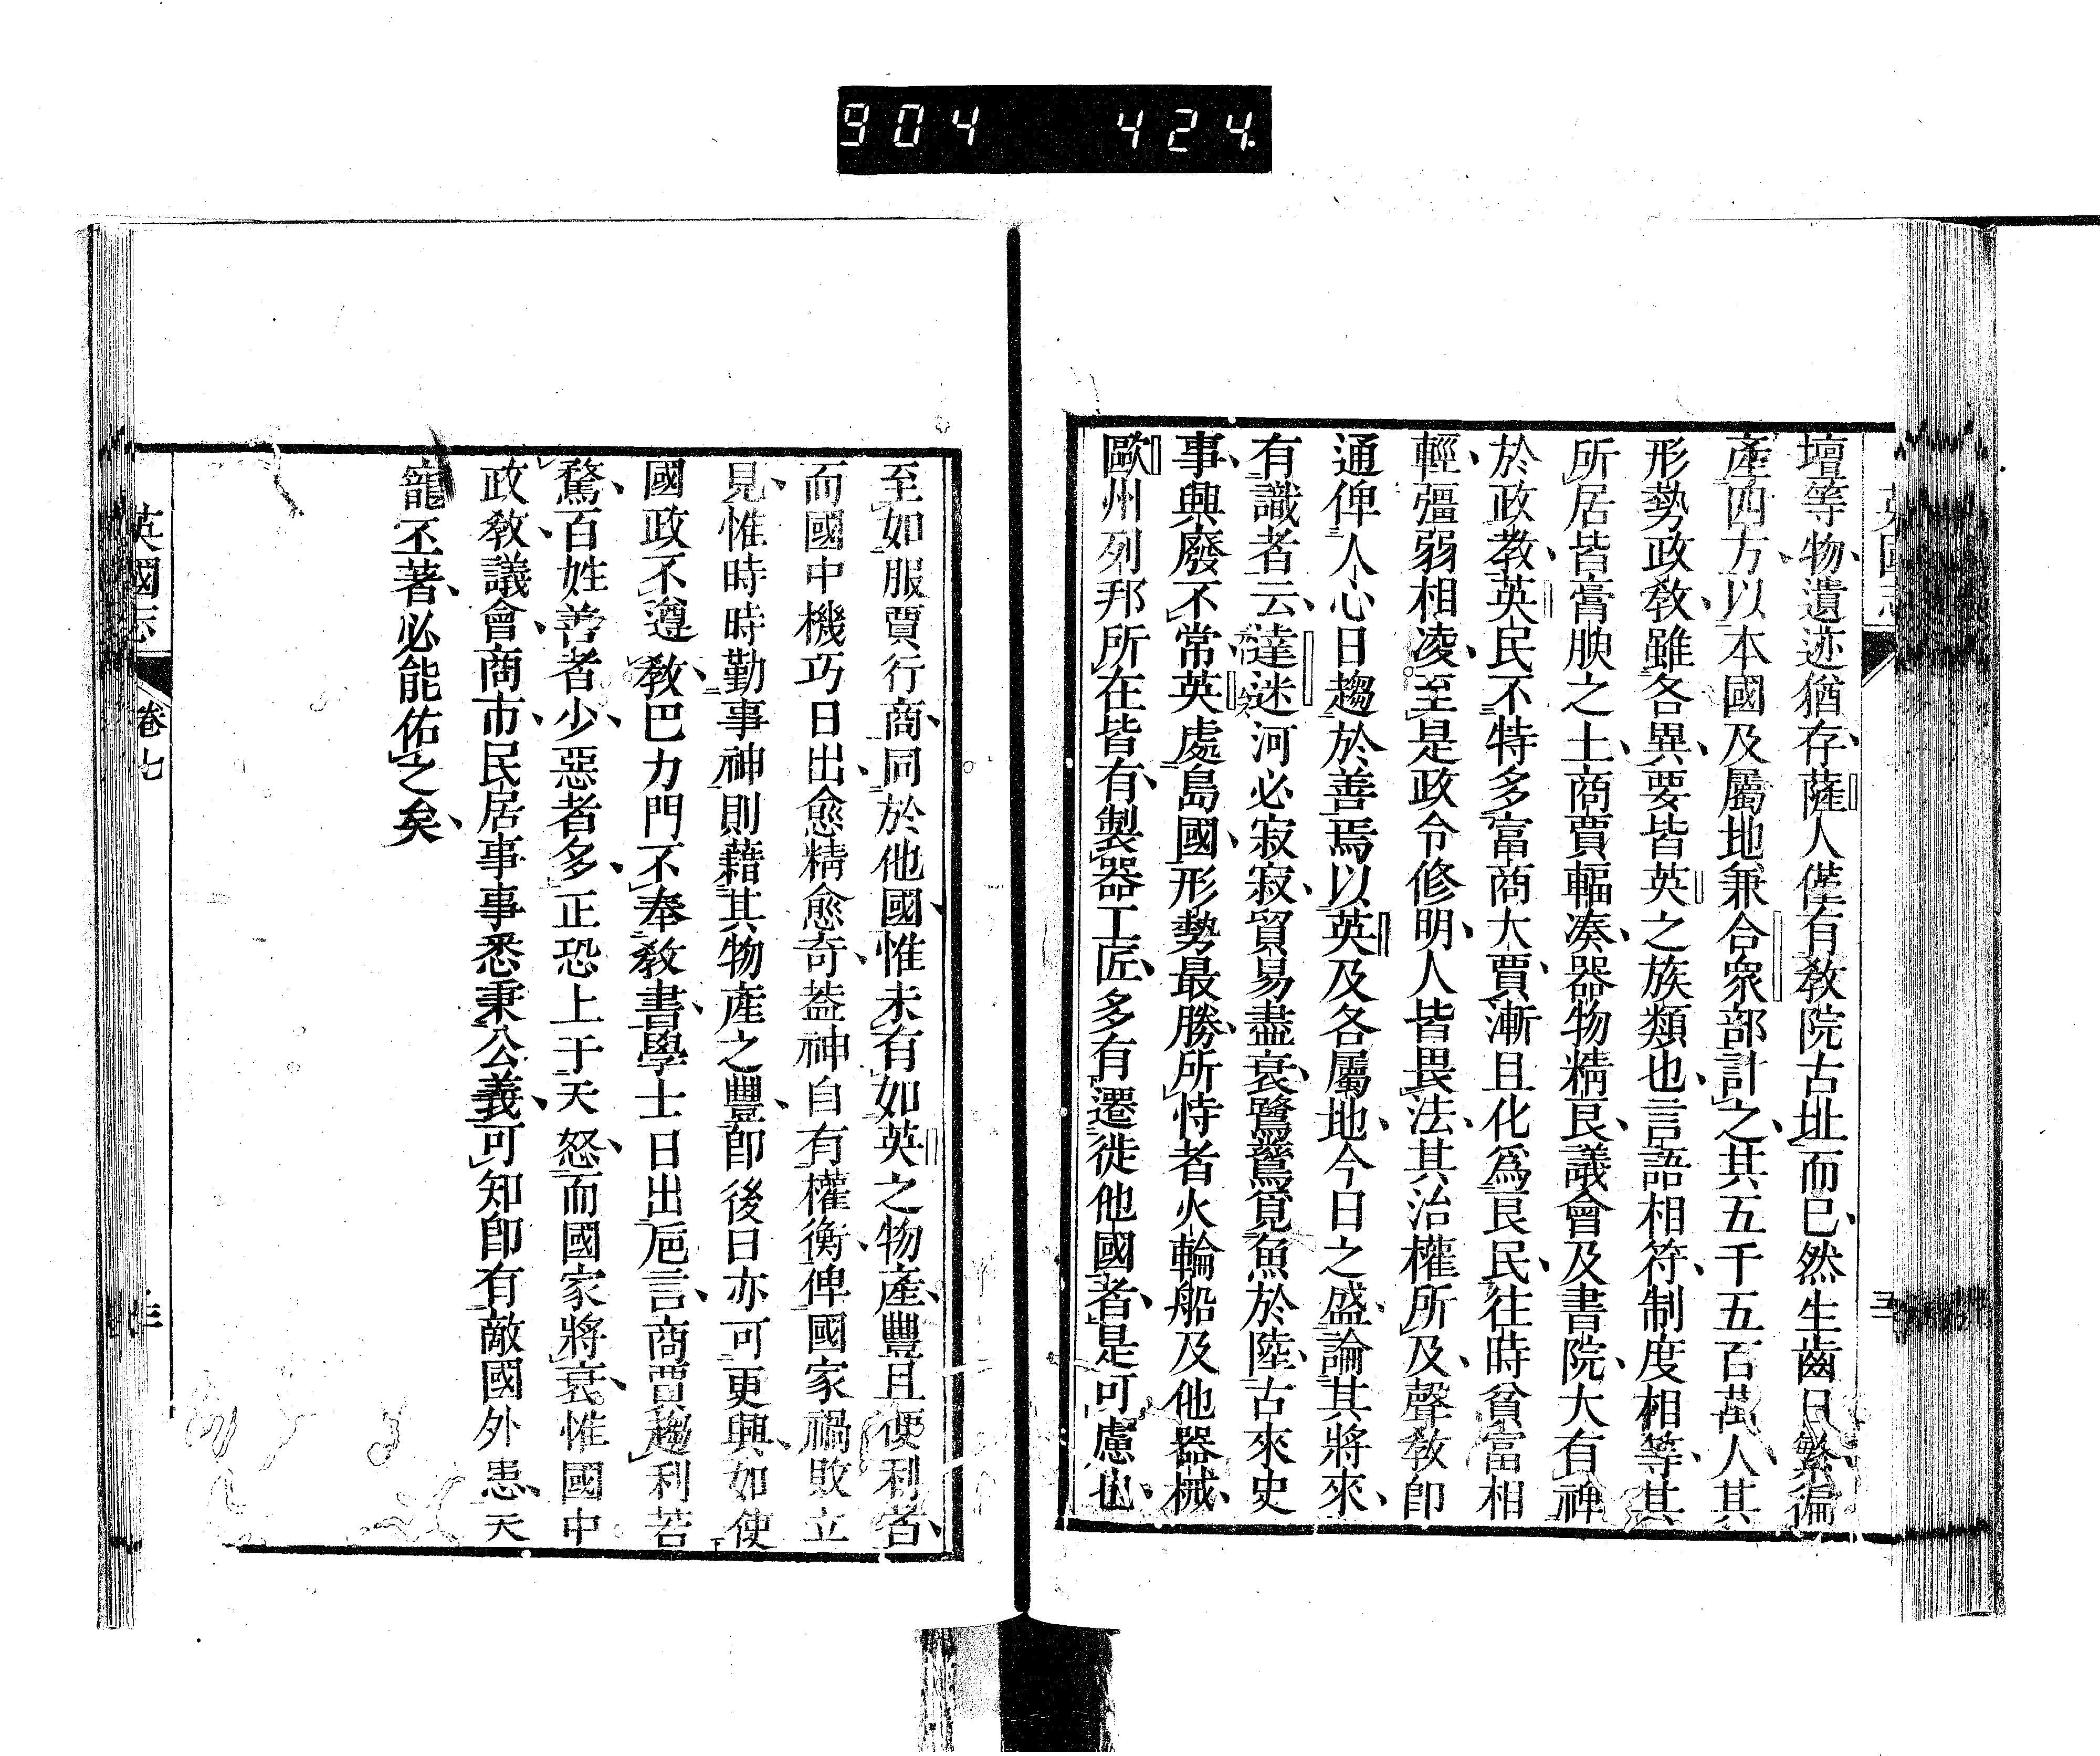 904 424.
英國志
壇等物遺迹猶存薩人僅有教院古址而已然生齒日繁徧
產四方以本國及屬地兼合衆部計之共五千五百萬人其
形勢政敎雖各異要皆英之族類也言語相符制度相等其
所居皆膏腴之土商賈輻凑器物精良議會及書院大有裨
於政教英民不特多富商大賈漸且化爲良民往時貧富相
輕彊弱相凌至是政令修明人皆畏法其治權所及聲敎卽
通俾人心日趨於善焉以英及各屬地今日之盛論其將來
有識者云達迷河必寂寂貿易盡衰鷺鷥覓魚於陸古來史
事興廢不常英處島國形勢最勝所恃者火輪船及他器械
歐州列邦所在皆有製器工匠多有遷徙他國者是可慮也
至如服賈行商同於他國惟未有如英之物產豐且便利者
而國中機巧日出愈精愈奇葢神自有權衡俾國家禍敗立
見惟時時勤事神則藉其物產之豐卽後日亦可更興如使
國政不遵敎巴力門不奉敎書學士日出巵言商賈趨利若
騖百姓善者少惡者多正恐上于天怒而國家將衰惟國中
政敎議會商市民居事事悉秉公義可知卽有敵國外患天
寵丕著必能佑之矣
英國志
卷七